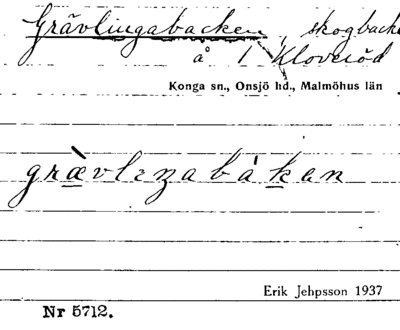 Grävlingabacken, skogbacke
å 1 Kloveröd
Konga sn., Onsjö hd., Malmöhus län
græ̀vlɩŋabákən
Erik Jehpsson 1937
Nr 5712.